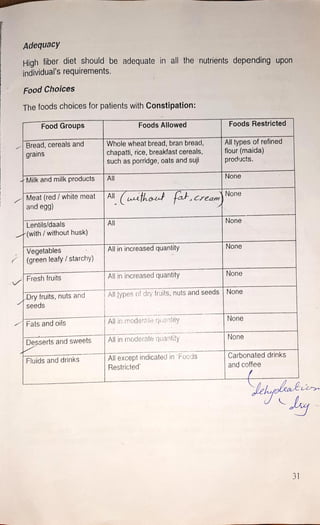 Adequacy
High fiber diet should be adequate in all the nutrients depending upon
individual's requirements.
Food Choices
The foods choices for patients with Constipation:
Food Groups Foods Allowed Foods Restricted
Bread, cereals and grains Whole wheat bread, bran bread, chapatti, rice, breakfast cereals, such as porridge, oats and suji All types of refined flour (maida) products.
Milk and milk products All None
Meat (red / white meat and egg) All (without fat, cream) None
Lentils/daals (with / without husk) All None
Vegetables (green leafy / starchy) All in increased quantity None
Fresh fruits All in increased quantity None
Dry fruits, nuts and seeds All types of dry fruits, nuts and seeds None
Fats and oils All in moderate quantity None
Desserts and sweets All in moderate quantity None
Fluids and drinks All except indicated in 'Foods Restricted' Carbonated drinks and coffee
dehydration
dry
31